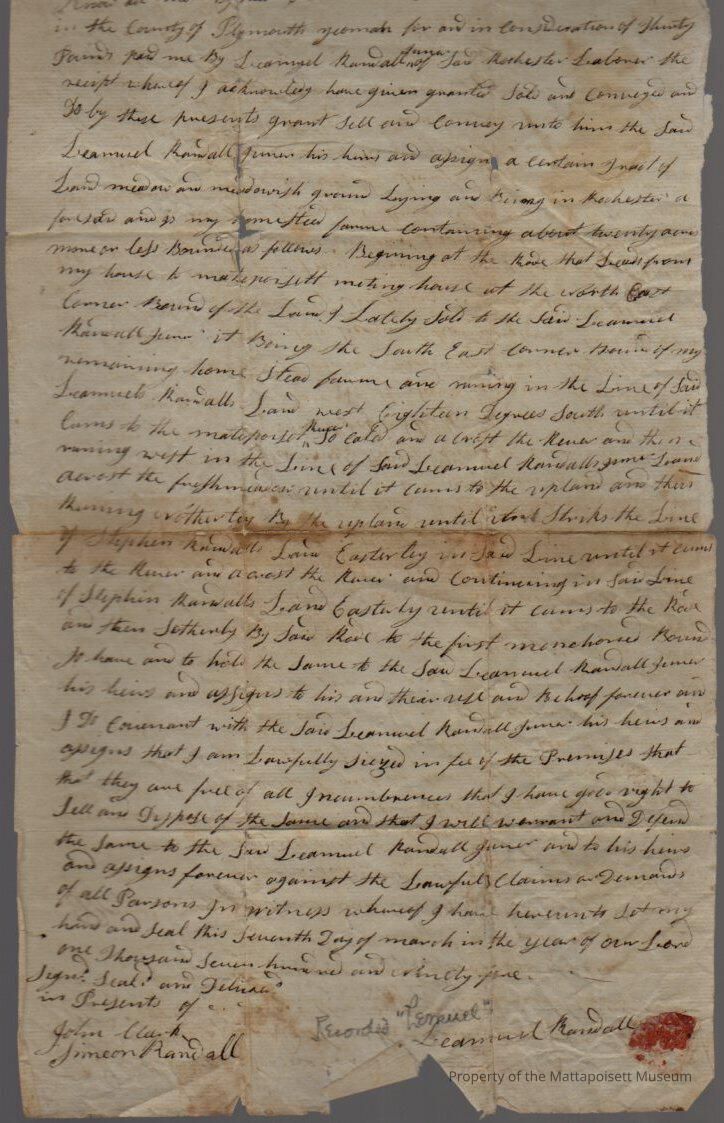 in the County of Plymouth yeoman for and in Consideration of thirty
Pounds paid me By Leamuel Randall Juner of Said Rochester Labourer the
receipt whereof I acknowledg have given granted Sold and Conveyed and
Do by these presents grant Sell and Convey unto him the Said
Leamuel Randall Juner his heirs and assigns a Certain Tract of
Land meadow and meadowish ground Lying and Being in Rochester a
foresaid and is my homesteed farme Containing about twenty acers
more or less Bounded as follows. Begining at the Rode that Leads from
my house to matepoisett meting house at the North East
Corner Bound of the Land I Lately Sold to the Said Leamuel
Randall Juner it Being the South East Corner Bound of my
remaining home Stead farme and runing in the Line of Said
Leamuels Randalls Land west Eighteen Degrees South until it
Cums to the matepoiset River So Caled and acrost the River and then
runing west in the Line of Said Leamuel Randalls Juner Land
acrost the freshmeadow until it Cums to the upland and then
Runing northerley By the upland until it Strikes the Line
of Stephen Randalls Land Easterley in Said Line until it cums
to the River and acrost the River and Continuing in Said Line
of Stephen Randalls Land Easterly until it Cums to the Rode
and then Sotherly By Said Rode to the first menchoned Bound
To have and to hold the Same to the Said Leamuel Randall Juner
his heirs and assigns to his and their use and Behoof forever and
I Do Covenant with the Said Leamuel Randall Juner his heirs and
assigns that I am Lawfully Siezed in fee of the Premises that
that they are free of all Incumbrences that I have good right to
Sell and Dispose of the Same and that I will warrant and Defend
the Same to the Said Leamuel Randall Juner and to his heirs
and assigns forever against the Lawful Claims or Demands
of all Parsons In witness whereof I have hereunto Set my
hand and Seal this Seventh Day of march in the year of our Lord
one Thousand Seven hundred and Ninety five.
Signd Seald and Deliverd
in Presents of
John Clark
Simeon Randall
Recorded "Lemuel"
Leamuel Randall
Property of the Mattapoisett Museum